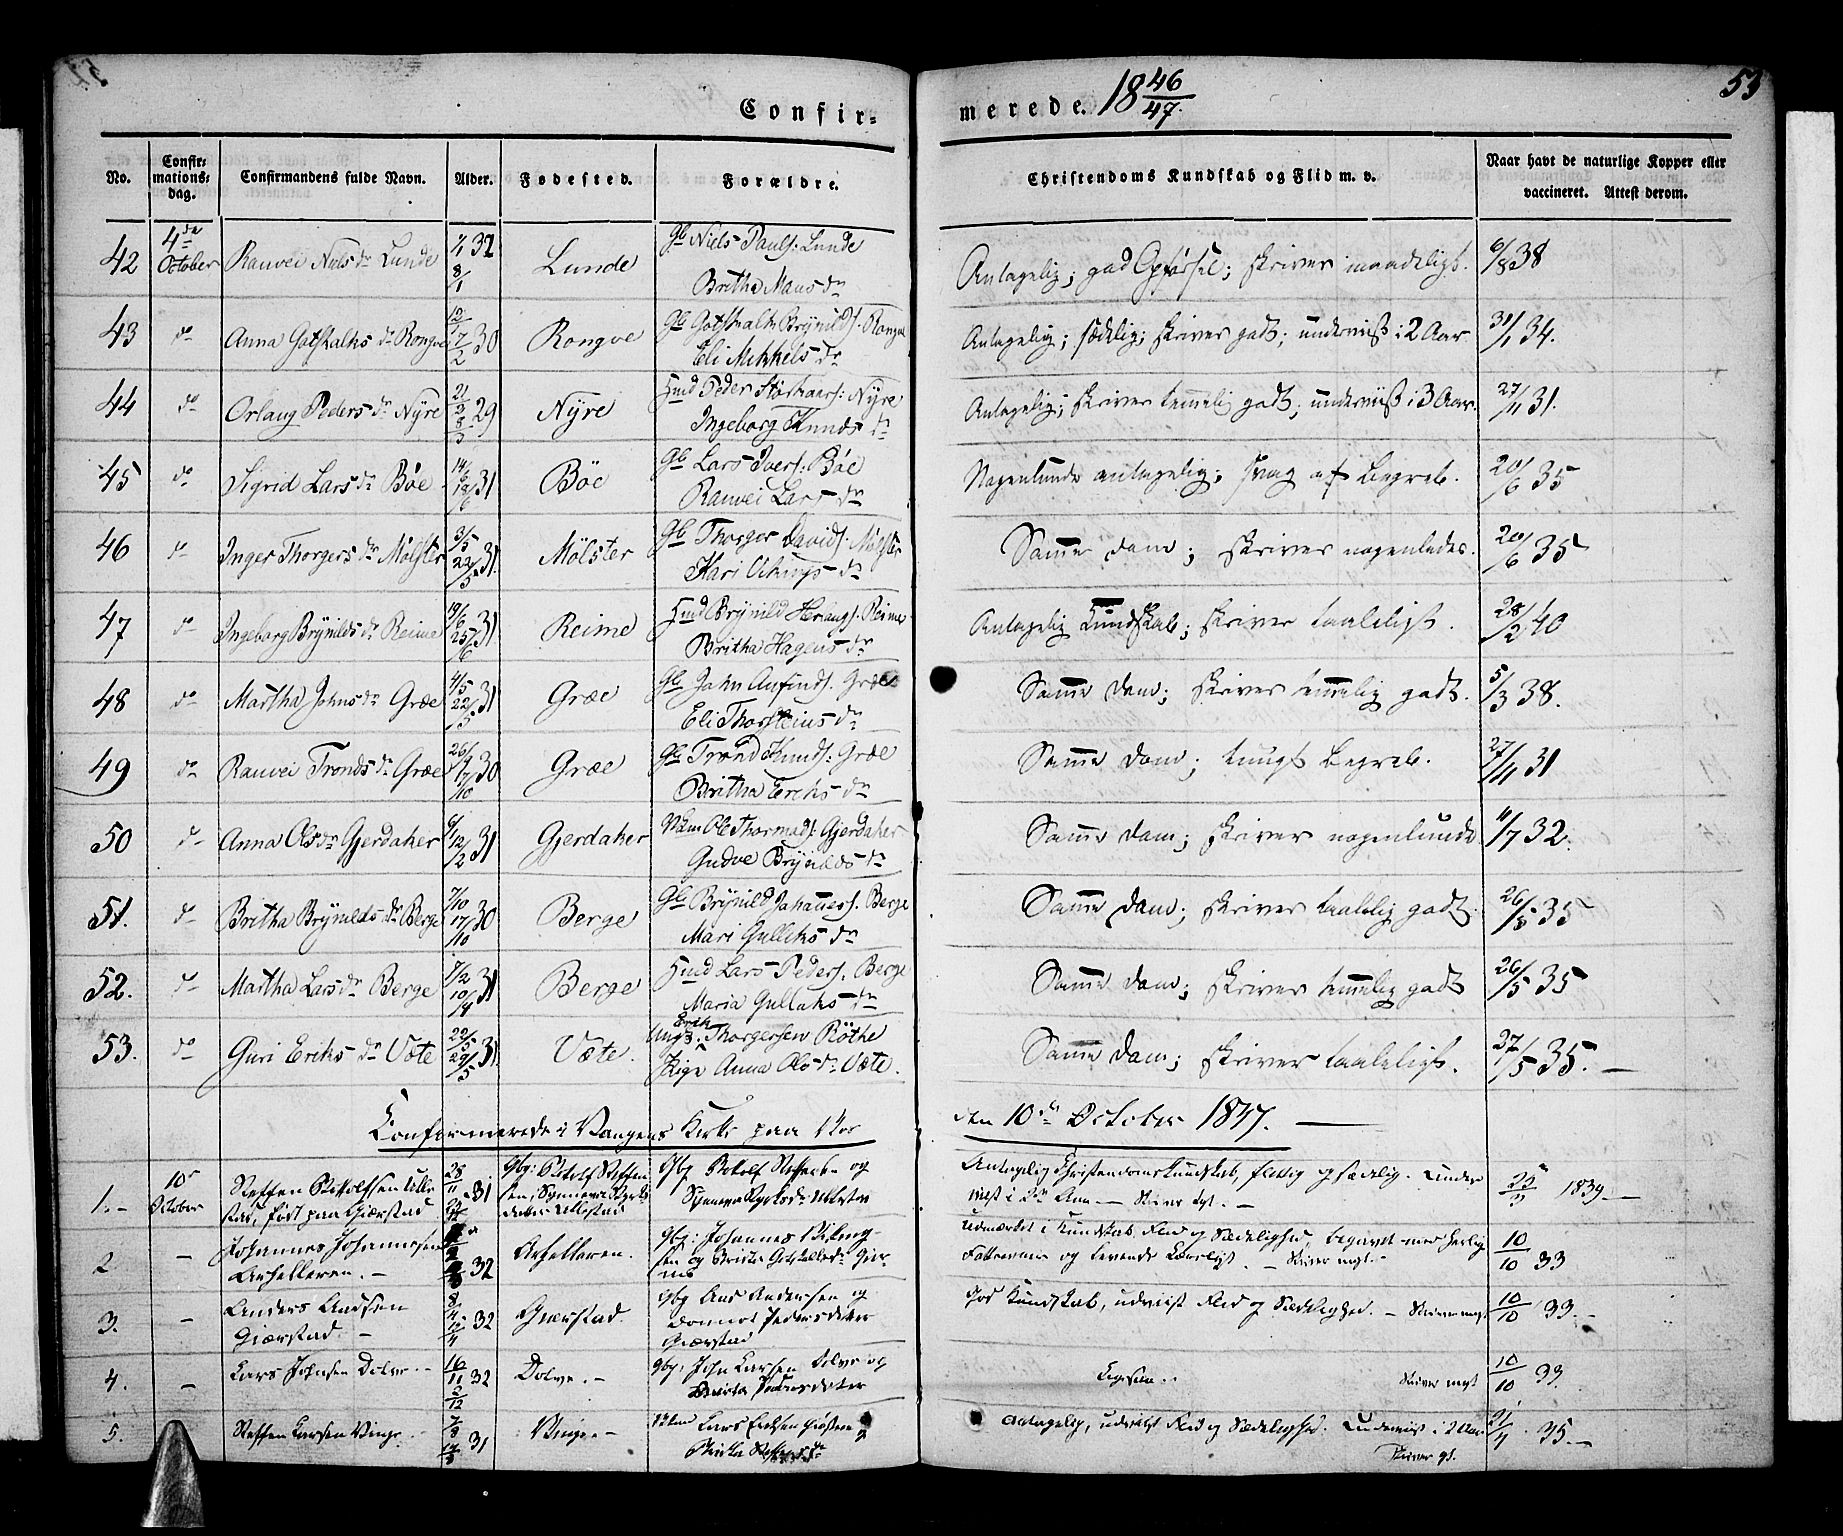 Confir- merede. 18 46/47. 53
No.
Confir-
mations-
dag.
Confirmandens fulde Navn.
Alder.
Fødested.
Forældre.
Christendoms Kundskab og Flid m. v.
Naar havt de naturlige Kopper eller
vaccineret. Attest derom.
42 4de October Ranvei Niels dr Lunde 7/1 32 8/1 Lunde Gb Niels Pauls: Lunde
Britha Mans dr
Antagelig; god Opførsel; skriver maadeligt. 6/8 38
43 do Anna Gotskalks dr Rongve 30 Rongve Gb Gotskalk Brynilds: Rongve
Eli Mikkels dr
Antagelig; sædelig; skriver godt; underviist i 2 Aar. 31/1 34.
44 do Orlaug Peders dr Nyre 29 Nyre Hmd Peder Nyre
Ingeborg Knuds dr
Antagelig; skriver temmelig godt; underviist i 3 Aar. 27/11 31.
45 do Sigrid Lars dr Bøe 31 Bøe Gb Lars Ivers: Bøe
Ranvei Lars dr
Nogenlunde antagelig; svag af Begreb. 20/6 35
46 do Inger Thorgers dr Mølster 3/5 22/5 31. Mølster Gb Thorger Davids: Mølster
Kari dr
Samme Dom; skriver nogenledes. 20/6 35
47 do Ingeborg Brynilds dr Reime 19/6 25/6 31 Reime Hmd Brynild Reime
Britha Hagens dr
Antagelig Kundskab; skriver taaleligt. 28/2 40
48 do Martha Johns dr Græe 4/5 22/5 31 Græe Gb John Anfinds: Græe
Eli Thorsteins dr
Samme Dom; skriver temmelig godt. 5/3 38.
49 do Ranvei Tronds dr Græe 30 Græe Gb Trond Knuds: Græe
Britha Eriks dr
Samme Dom; tungt Begreb. 27/11 31
50 do Anna Ols dr Gjerdaker 6/1 12/2 31 Gjerdaker Ole Thormods: Gjerdaker
Gudve Brynilds dr
Samme Dom; skriver nogenlunde 11/7 32.
51. do Britha Brynilds dr Berge 7/10 17/10 30 Berge Gb Brynild Johannes: Berge
Mari Gulleks dr
Samme Dom; skriver taalelig godt. 26/5 35
52. do Martha Lars dr Berge 7/2 10/4 31 Berge Hmd Lars Peders: Berge
Maria Gulleks dr
Samme Dom; skriver temmelig godt 26/5 35
53. do Guri Eriks dr Væte 22/5 29/5 31. Væte. Ungk: Erik Thorgersen Røthe
Pige Anna Ols dr Væte.
Samme Dom; skriver taaleligt. 27/5 35.
Confirmerede i Vangens Kirke paa Vos den 10de October 1847.
1. 10de October Steffen Botolfsen Ulle-
stad, født paa Giærstad
28/11 31
Gbf: Botolf Steffen-
sen, Synneva
datter Ullestad
Gbf Botolf Steffens og
Synneva Ullestad
Antagelig Christendomskundskab, flittig og sædelig. Under-
viist i 2de Aar — Skriver
25/11 1839
2 Johannes Johannesen
32
Gbf: Johannes
sen og Britha Gotskalksdr
Udmærket i Kundskab, Flid og Sædelighed, begavet med herlig
Fatteevne og levende Kærlighed. — Skriver megt
10/10 33
3. Anders Andsen
Giærstad.
8/4 12/4 32 Giærstad. Gbf Ands Andersen og
Pedersdatter
Giærstad
God Kundskab, udviist Flid og Sædelighed. — Skriver megt 10/10 33.
4. Lars Johnsen Dolve. 16/11 2/12 32 Dolve. Gbf: John Larsen Dolve og
Britha
Ligesaa. Skriver megt 10/10 33.
5. Steffen Larsen Vinge 7/8 31 Vinge Lars
Britha Steffensdr
Antagelig, udviist Flid og Sædelighed. Underviist i 2 Aar
Skriver gt.
21/4 35